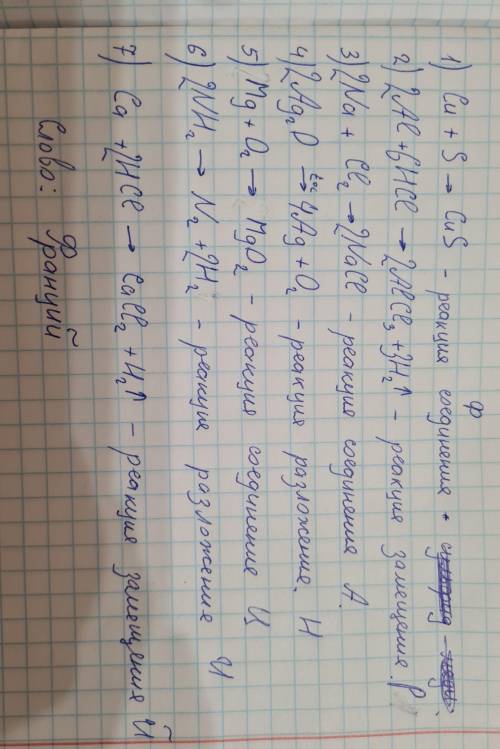 1) Cu + S → CuS - реакция соединения Ф
2) 2Al + 6HCl → 2AlCl₃ + 3H₂↑ - реакция замещение. Р
3) 2Na + Cl₂ → 2NaCl - реакция соединения А.
4) 2Ag₂O → 4Ag + O₂ - реакция разложение. Н
5) Mg + O₂ → MgO₂ - реакция соединение Ц
6) 2NH₂ → N₂ + 2H₂ - реакция разложение И
7) Ca + 2HCl → CaCl₂ + H₂↑ - реакция замещения Й
Слово: Франций